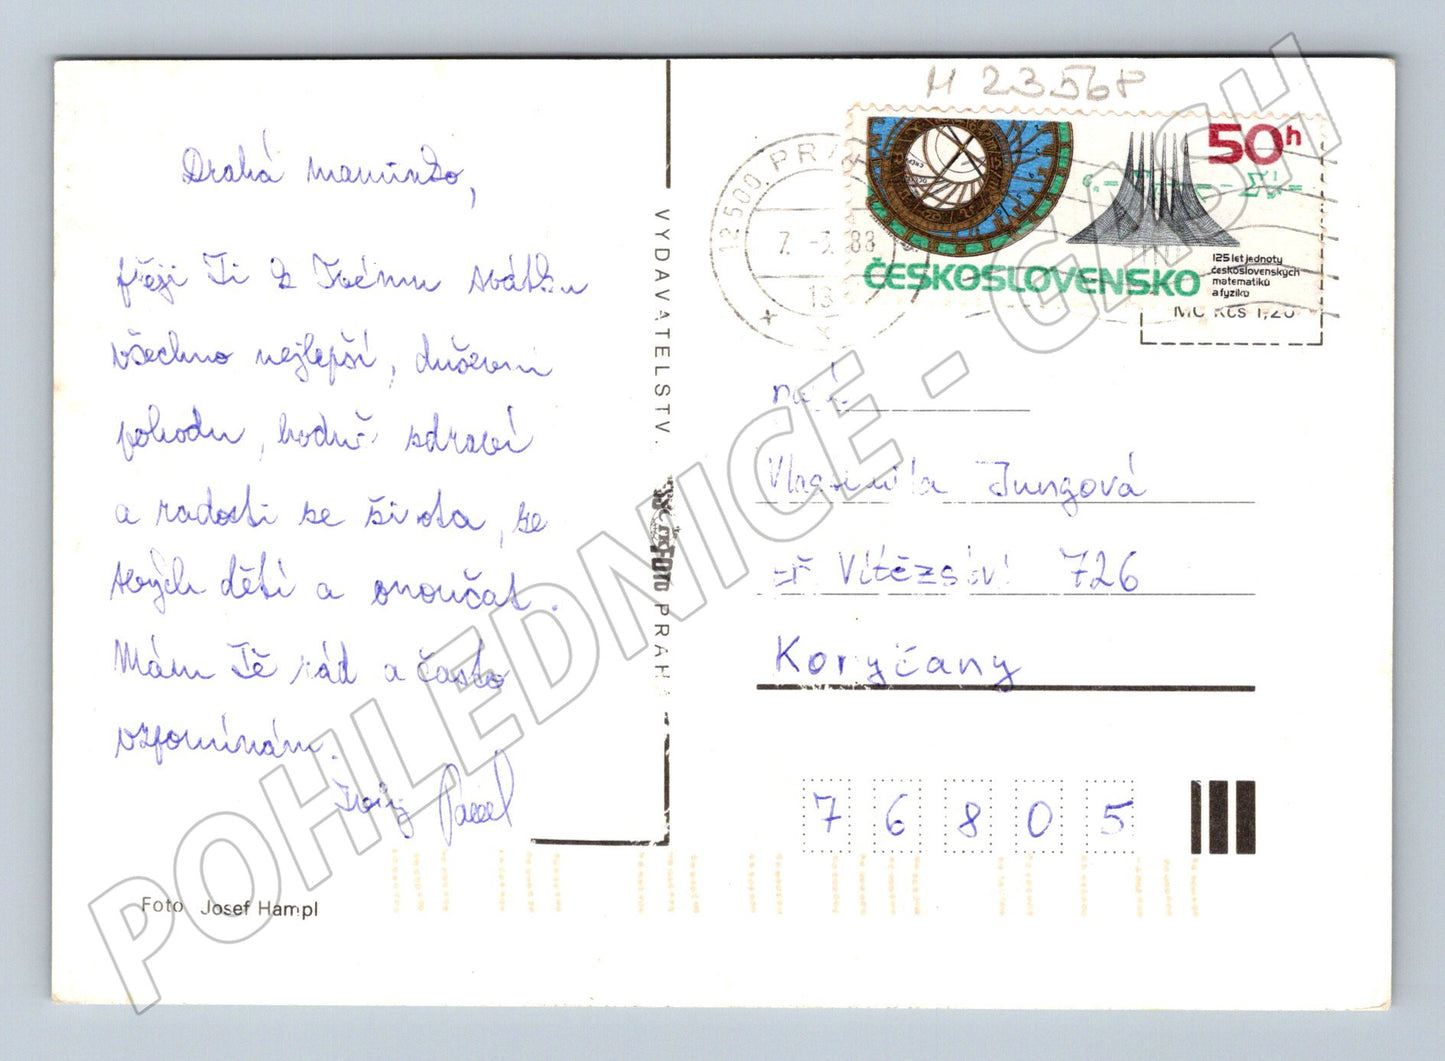 M 23568
Drahá maminko,
přeji Ti k Tvému svátku
všechno nejlepší, duševní
pohodu, hodně zdraví
a radosti ze života, ze
svých dětí a vnoučat.
Mám Tě rád a často
vzpomínám.
Tvůj Pavel
Foto Josef Hampl
VYDAVATELSTV.
FOTO PRAHA
12500 PRA
7. -3. 88
50h
ČESKOSLOVENSKO
125 let jednoty
československých
matematiků
a fyziků
MC Kčs 1,20
Jungová
Vítězství 726
Koryčany
7 6 8 0 5
POHLEDNICE - GASH